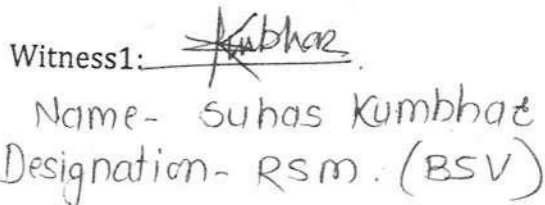 Witness1: Kumbhar
Name- Suhas Kumbhar
Designation- RSM. (BSV)